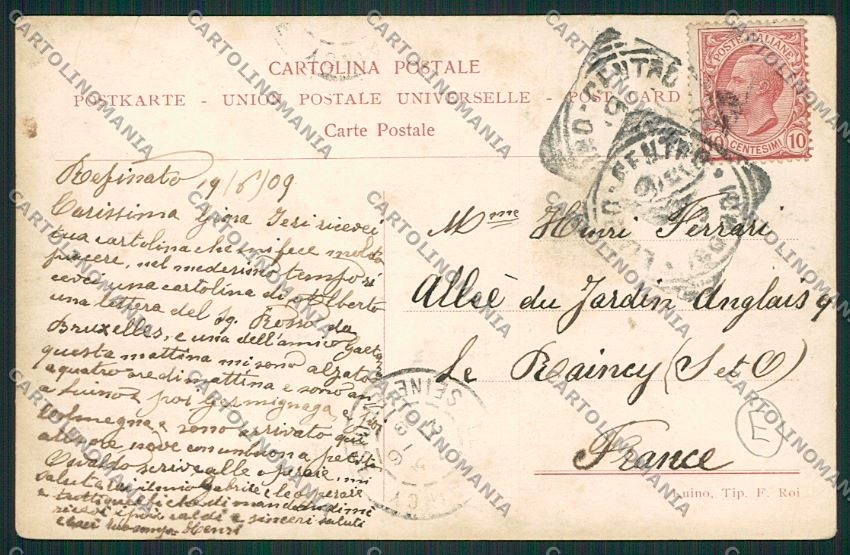 CARTOLINA POSTALE
POSTKARTE - UNION POSTALE UNIVERSELLE - POST CARD
Carte Postale
POSTE ITALIANE
CENTESIMI 10
19/6/09
Carissima Gina Ieri ricevei
tua cartolina che mi fece molto
piacere, nel medesimo tempo ri
cevei una cartolina di Alberto
una lettera del Sg. Rosso da
Bruxelles, e una dell'amico
questa mattina mi sono alzato
a quattro ore di mattina e sono
a Luino poi Germignaga e
e sono arrivato qui
alle ore nove con un buon appetito
Osvaldo scrive alle operaie, mi
saluta le operaie
e tutti quelli che di mandano di me
ricevi i più caldi e sinceri saluti
Henri
Mme Henri Ferrari
Allée du Jardin Anglais 9
Le Raincy (S et O)
France
Luino, Tip. F. Roi
CENTRO
SEINE
CARTOLINOMANIA